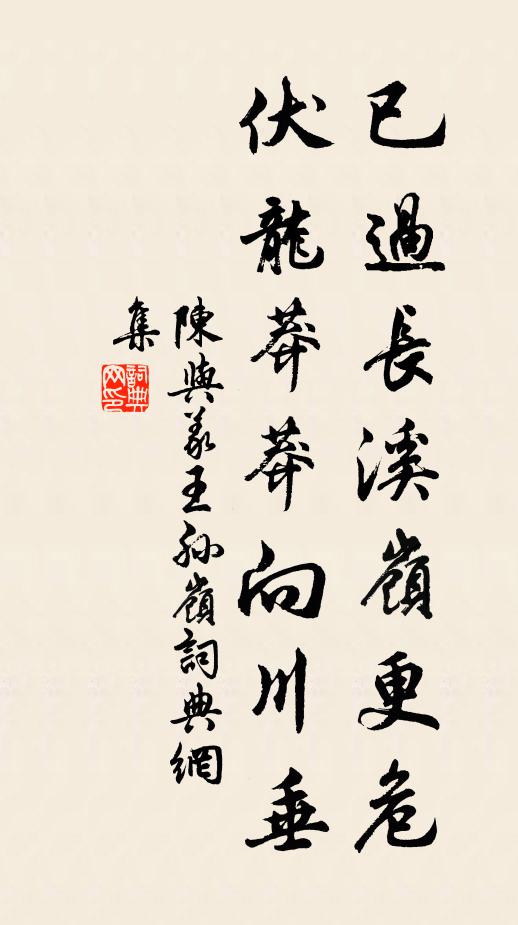 已過長溪嶺更危
伏龍莽莽向川垂
陳與義王孫嶺詞典網
集
詞典網印